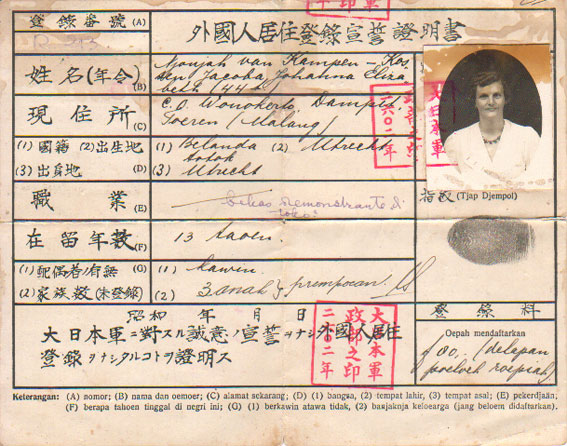 登錄番號 (A)
外國人居住登錄宣誓證明書
姓名(年令) (B)
Njonjah van Kampen - Kos-
ten Jacoba Johanna Eliza-
beth (44 t.)
現住所 (C)
C.O. Wonokerto, Dampit
Soeren (Malang)
(1) 國籍 (2) 出生地
(3) 出身地 (D)
(1) Belanda (2) Utrecht
totok
(3) Utrecht
職業 (E)
bekas
指紋 (Tjap Djempol)
在留年數 (F)
13 taoen
(1) 配偶者ノ有無 (G)
(2) 家族數(未登錄)
(1) kawin
(2) 3 anak prempoean
昭和 年 月 日
大日本軍ニ對スル誠意ノ宣誓ヲナシ外國人居住
登錄ヲナシタルコトヲ證明ス
大日本軍
政部之印
二六〇二年
登錄料
Oepah mendaftarkan
f 80,- (delapan
poeloeh roepiah)
Keterangan: (A) nomor; (B) nama dan oemoer; (C) alamat sekarang; (D) (1) bangsa, (2) tempat lahir, (3) tempat asal; (E) pekerdjaän;
(F) berapa tahoen tinggal di negri ini; (G) (1) berkawin atawa tidak, (2) banjaknja keloearga (jang beloem didaftarkan).